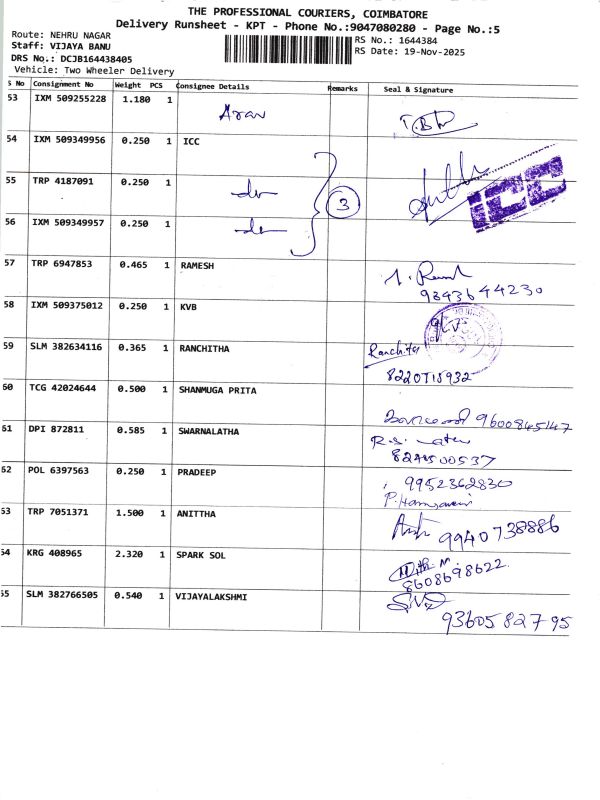 THE PROFESSIONAL COURIERS, COIMBATORE
Delivery Runsheet - KPT - Phone No.:9047080280 - Page No.:5
Route: NEHRU NAGAR
Staff: VIJAYA BANU
DRS No.: DCJB164438405
Vehicle: Two Wheeler Delivery
RS No.: 1644384
RS Date: 19-Nov-2025
S No Consignment No Weight PCS Consignee Details Remarks Seal & Signature
53 IXM 509255228 1.180 1
54 IXM 509349956 0.250 1 ICC
55 TRP 4187091 0.250 1 3
ICC
56 IXM 509349957 0.250 1
57 TRP 6947853 0.465 1 RAMESH
9843644230
58 IXM 509375012 0.250 1 KVB
59 SLM 382634116 0.365 1 RANCHITHA Ranchitha
60 TCG 42024644 0.500 1 SHANMUGA PRITA
9600845147
61 DPI 872811 0.585 1 SWARNALATHA
62 POL 6397563 0.250 1 PRADEEP 9952362830
63 TRP 7051371 1.500 1 ANITTHA
9940738886
64 KRG 408965 2.320 1 SPARK SOL
8608698622
65 SLM 382766505 0.540 1 VIJAYALAKSHMI
9360582795